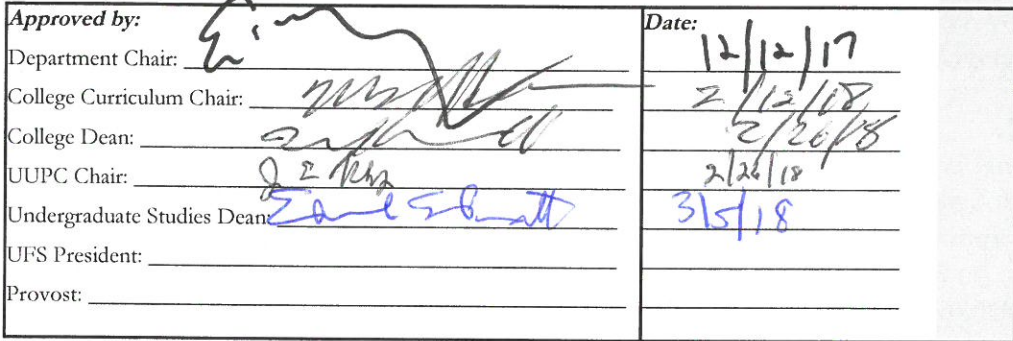 Approved by: Date:
Department Chair: 12/12/17
College Curriculum Chair: 2/12/18
College Dean: 2/26/18
UUPC Chair: 2/26/18
Undergraduate Studies Dean: 3/5/18
UFS President:
Provost: